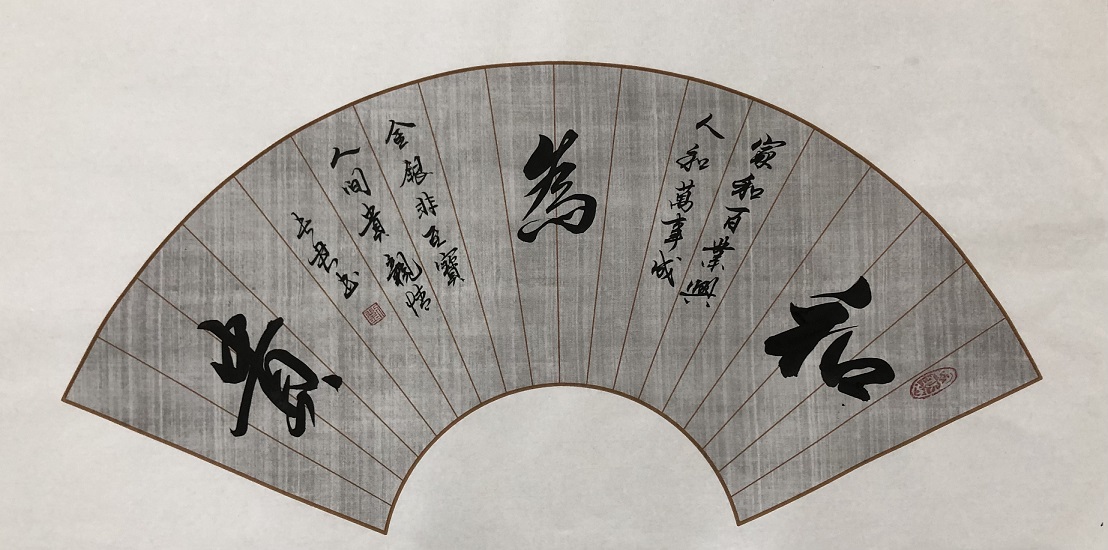 和
家和百業興
人和萬事成
為
金銀非至寶
人間貴親情
貴